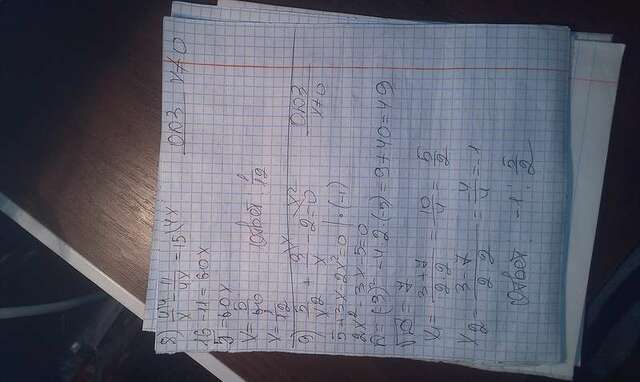 8) 4/x - 11/4x = 15 |·4x ОДЗ x≠0
16-11=60x
5=60x
x=5/60
x=1/12 Ответ 1/12
9) 5/x² + 3/x - 2=0 ОДЗ x≠0
5+3x-2x²=0 |·(-1)
2x²-3x-5=0
D=(-3)²-4·2·(-5)=9+40=49
√D=7
=10/4=5/2
=-1
Ответ -1; 5/2